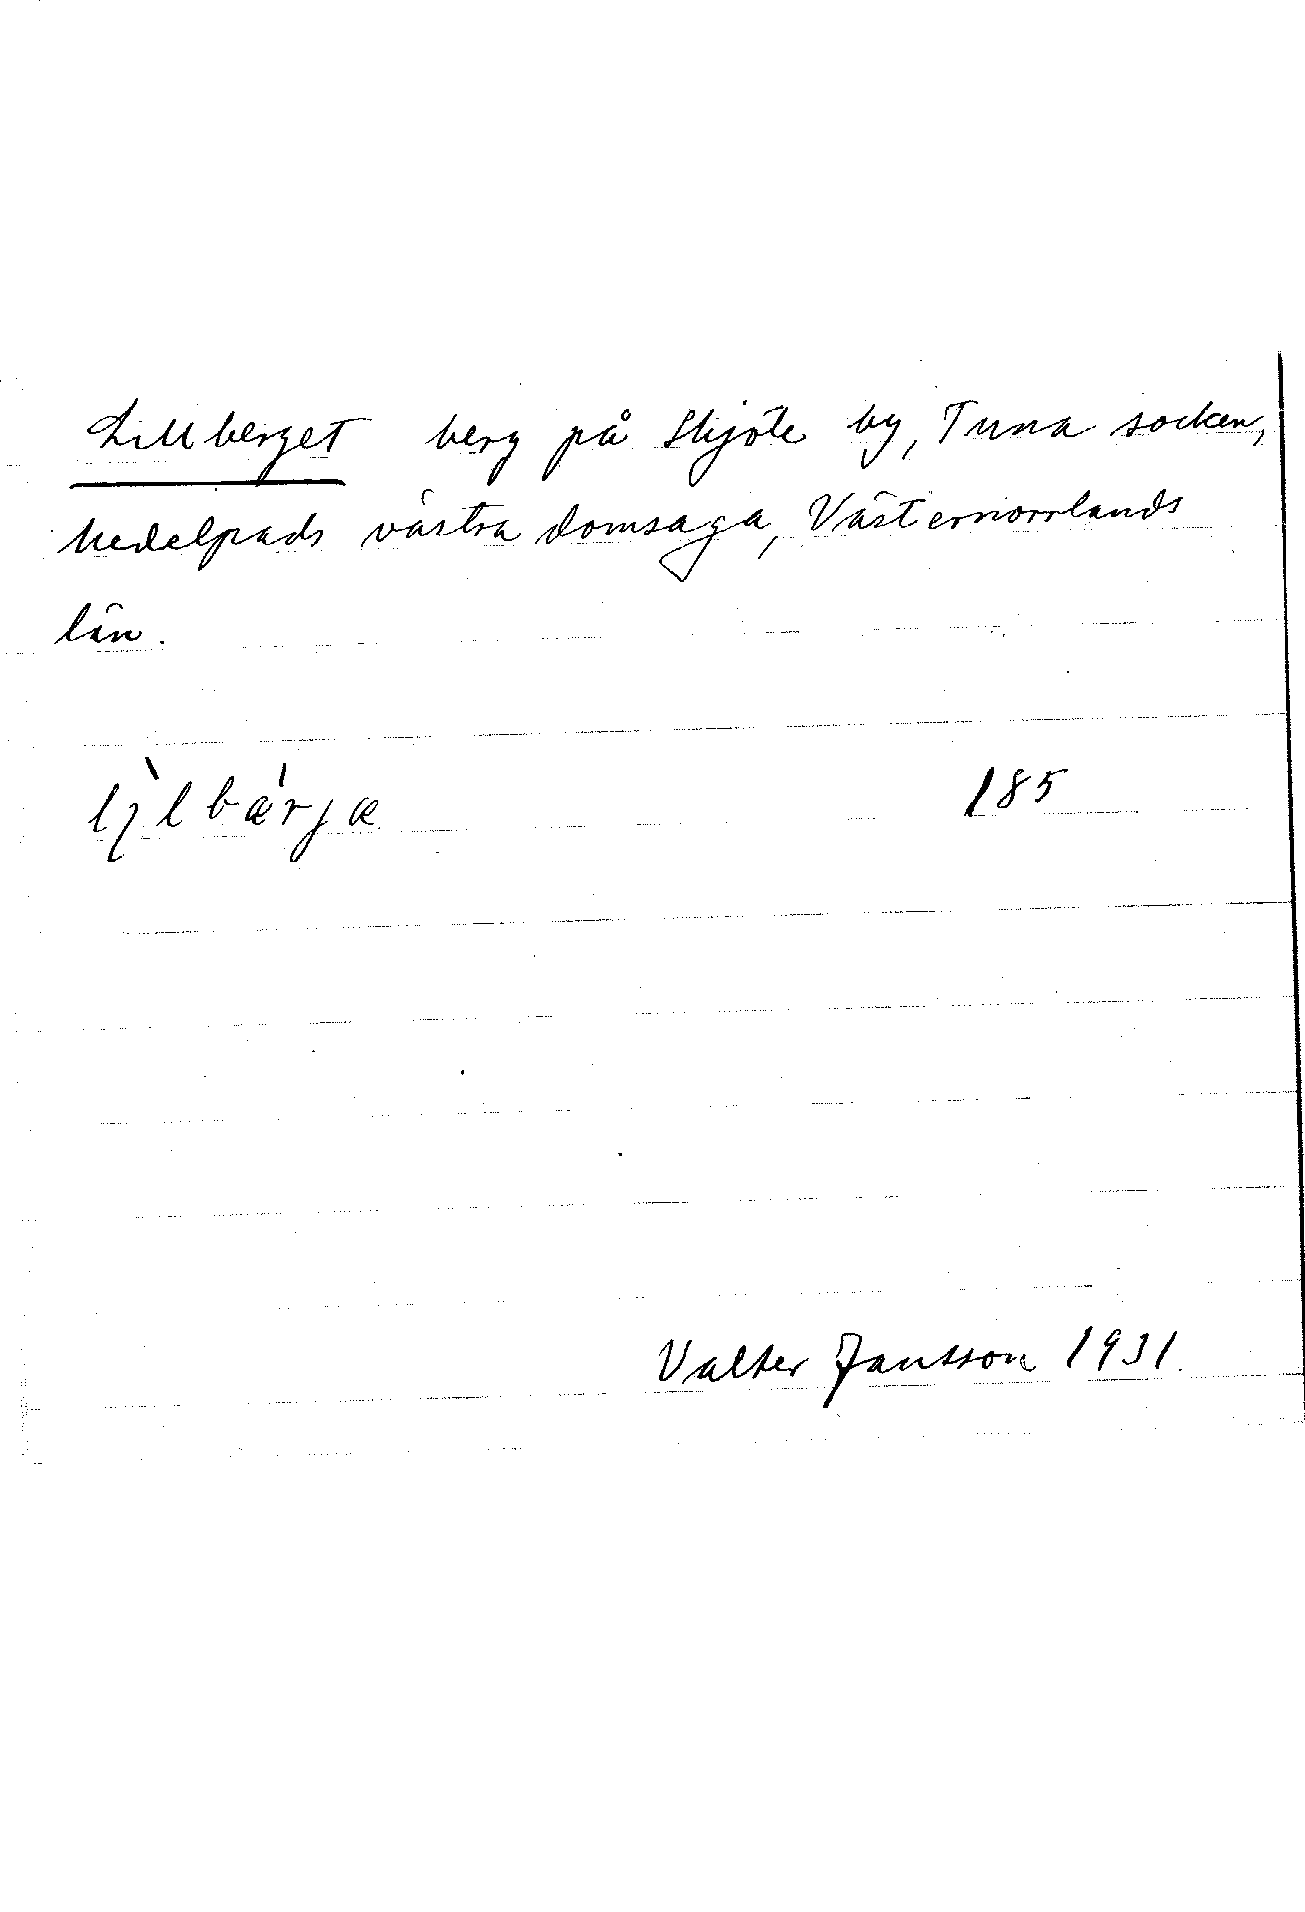 Lillberget berg på Skjöle by, Tuna socken,
Medelpads västra domsaga, Västernorrlands
län.
lı̀lbæ̀rjæ 185
Valter Jansson 1931.